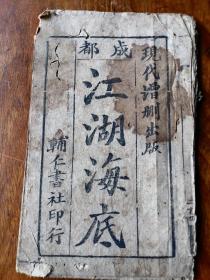 成都
現代增刪出版
江湖海底
輔仁書社印行